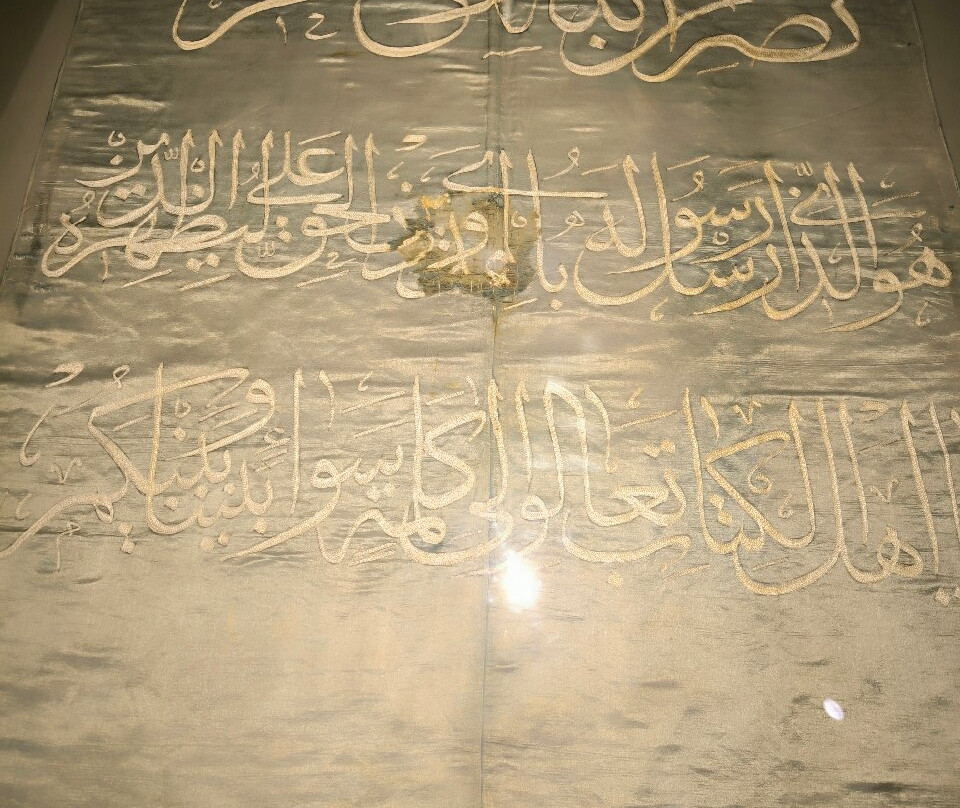 نصر من الله وفتح قريب
هو الذي ارسل رسوله بالهدى ودين الحق ليظهره على الدين
يا اهل الكتاب تعالوا الى كلمة سواء بيننا وبينكم